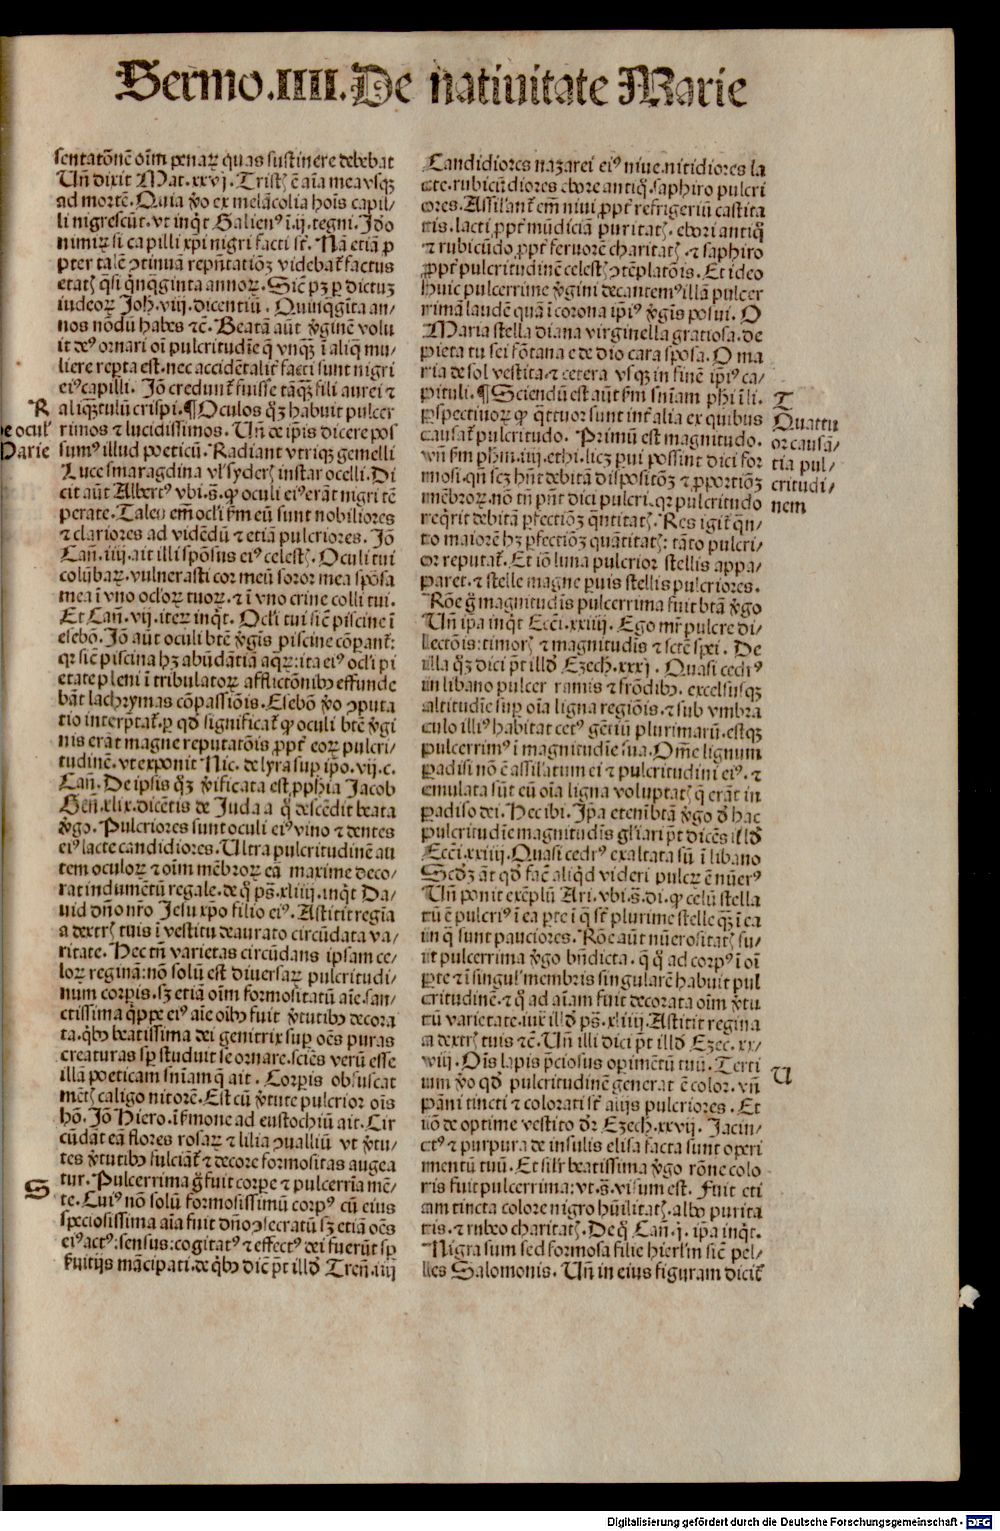 Sermo.IIII.De natiuitate Marie
sentatõnē oīm penaꝝ quas sustinere debebat
Uñ dixit Mat.xxvj.Tristꝭ ē aīa mea vsqꝫ
ad mortē.Quia ꝟo ex melācolia hoīs capil/
li nigrescūt.vt inqͥt Galienꝰ ī.ij.tegni.Iđo
nimiꝝ si capilli xp̄i nigri facti st̄.Nā etiā ꝓ
pter talē ꝯtinuā rep̄ntatiōꝫ videbat̄ factus
etatꝭ qͣsi qͥnqͣginta annoꝝ.Sic̄ pꝫ ꝑ dictuꝫ
iudeoꝝ Joh.viij.dicentiū.Quinqͣgīta an/
nos nōdū habes ⁊c̄.Beatā aūt ꝟginē volu
it deꝰ ornari oī pulcritudīe q̄ vnqͣꝫ ī aliqͣ mu/
liere reꝑta est.nec accidētalit̄ facti sunt nigri
eiꝰ capilli.Jō credunt̄ fuisse tāqͣꝫ fili aurei ⁊
aliqͣtulū crispi.¶Oculos qͦꝫ habuit pulcer
rimos ⁊ lucidissimos.Uñ de ip̄is dicere pos
sumꝰ illud poeticū.Radiant vtriqꝫ gemelli
Luce smaragdina vl̓ syderꝭ instar ocelli.Di
cit aūt Albertꝰ vbi.s̄.ꝙ oculi eiꝰ erāt nigri tē
perate.Tales em̄ ocl̓i ẜm eū sunt nobiliores
⁊ clariores ad vidēdū ⁊ etiā pulcriores.Jō
Cañ.iiij.ait illi spōsus eiꝰ celestꝭ.Oculi tui
colūbaꝝ.vulnerasti cor meū soror mea spōsa
mea ī vno ocl̓oꝝ tuoꝝ.⁊ ī vno crine colli tui.
Et Cañ.vij.iteꝝ inqͥt.Ocl̓i tui sic̄ piscine ī
esebō.Jō aūt oculi btē ꝟgīs piscine cōꝑant̄:
qꝛ sic̄ piscina hꝫ abūdātiā aqͣꝝ:ita eiꝰ ocl̓i pi
etate pleni ī tribulatoꝝ afflictōnibꝫ effunde
bāt lachrymas cōpassiōis.Esebō ꝟo ꝯputa
tio interp̄tat̄.ꝑ qđ significat̄ ꝙ oculi btē ꝟgi
nis erāt magne reputatōis ꝓpt̄ eoꝝ pulcri/
tudinē.vt exponit Nic.de lyra suꝑ ip̄o.vij.c.
Cañ.De ipsis qͦꝫ ꝟificata est ꝓphīa Jacob
Geñ.xlix.dicētis de Juda a qͦ descēdit beata
ꝟgo.Pulcriores sunt oculi eiꝰ vino ⁊ dentes
eiꝰ lacte candidiores.Ultra pulcritudinē au
tem oculoꝝ ⁊ oīm mēbroꝝ eā maxime deco/
rat indumētū regale.de qͦ pš.xliiij.inqͥt Da/
uid dño nr̄o Jesu xp̄o filio eiꝰ.Astitit regīa
a dextrꝭ tuis ī vestitu deaurato circūdata va/
rietate.Hec tñ varietas circūdans ipsam ce/
loꝝ reginā:nō solū est diuersaꝝ pulcritudi/
num corꝑis.sꝫ etiā oīm formositatū aīe.san/
ctissima qͥppe eiꝰ aīe oībꝫ fuit ꝟtutibꝫ decora
ta.qͥbꝫ beatissima dei genitrix suꝑ oēs puras
creaturas sꝑ studuit se ornare.sciēs verū esse
illā poeticam sñiam q̄ ait.Corꝑis obfuscat
mētꝭ caligo nitorē.Est cū ꝟtute pulcrior oīs
hō.Jō Hiero.ī ẜmone ad eustochiū ait.Cir
cūdāt eā flores rosaꝝ ⁊ lilia ꝯualliū vt ꝟtu/
tes ꝟtutibꝫ fulciāt̄ ⁊ decore formositas augea
tur.Pulcerrima g̊ fuit corꝑe ⁊ pulcerrīa mē/
te.Cuiꝰ nō solū formosissimū corpꝰ cū eius
speciosissima aīa fuit dño ꝯsecratū sꝫ etiā oēs
eiꝰ actꝰ:sensus:cogitatꝰ ⁊ effectꝰ dei fuerūt sꝑ
ẜuitijs mācipati.de qͥbꝫ dic̄ p̄t illđ Treñ.iiij
R
De ocul̓
Marie
S
Candidiores nazarei eiꝰ niue.nitidiores la
cte.rubicūdiores ebore antiqͦ.saphiro pulcri
ores.Assil̓ant̄ em̄ niui ꝓpt̄ refrigeriū castita
tis.lacti ꝓpt̄ mūdiciā puritatꝭ.ebori antiqͦ
⁊ rubicūdo ꝓpt̄ feruorē charitatꝭ.⁊ saphiro
ꝓpt̄ pulcritudinē celestꝭ ꝯtēplatōis.Et ideo
huic pulcerrime ꝟgini decantemꝰ illā pulcer
rimā laudē quā ī corona ip̄iꝰ ꝟgīs posui.O
Maria stella diana virginella gratiosa.de
pieta tu sei fōtana e de dio cara sposa.O ma
ria de sol vestita.⁊ cetera vsqꝫ in finē ip̄iꝰ ca/
pituli.¶Sciendū est aūt ẜm sñiam phi ī li.
ꝑspectiuoꝝ ꝙ qͣttuor sunt int̄ alia ex quibus
causat̄ pulcritudo.Primū est magnitudo.
vñ ẜm phm̄.iiij.ethi.licꝫ ꝑui possint dici for
mosi.qñ scꝫ hñt debitā dispositōꝫ ⁊ ꝓportiōꝫ
mēbroꝝ.nō tñ pñt dici pulcri.qꝛ pulcritudo
reqͥrit debitā ꝑfectiōꝫ qͣntitatꝭ.Res igit̄ qͣn/
to maiorē hꝫ ꝑfectiōꝫ quātitatꝭ:tāto pulcri/
or reputat̄.Et iō luna pulcrior stellis appa/
paret.⁊ stelle magne ꝑuis stellis pulcriores.
Rōe g̊ magnitudīs pulcerrima fuit btā ꝟgo
Uñ ip̄a inqͥt Ecci.xxiiij.Ego mr̄ pulcre di/
lectōis:timorꝭ ⁊ magnitudīs ⁊ sctē spei.De
illa qͦꝫ dici p̄t illđ Ezech.xxxj.Quasi cedrꝰ
in libano pulcer ramis ⁊ frōdibꝫ.excelsusqꝫ
altitudīe suꝑ oīa ligna regiōis.⁊ sub vmbra
culo illiꝰ habitat cetꝰ gētiū plurimarū.estqꝫ
pulcerrimꝰ ī magnitudīe sua.Om̄e lignum
ꝑadisi nō ē assil̓atum ei ⁊ pulcritudini eiꝰ.⁊
emulata sūt eū oīa ligna voluptatꝭ q̄ erāt in
ꝑadiso dei.Hec ibi.Ip̄a etenī btā ꝟgo đ hac
pulcritudīe magnitudīs gl̓iari p̄t dicēs illđ
Ecci.xxiiij.Quasi cedrꝰ exaltata sū ī libano
Scđꝫ āt qđ facē aliqͥd videri pulcꝝ ē nūerꝰ
Uñ ponit exēplū Ari.vbi.s̄.di.ꝙ celū stella
tū ē pulcriꝰ ī ea ꝑte ī qͣ st̄ plurime stelle qͣꝫ ī ea
in qͣ sunt pauciores.Rōe aūt nūerositatꝭ fu/
it pulcerrima ꝟgo bñdicta.q̄ qͦ ad corpꝰ ī oī
ꝑte ⁊ ī singul̓ membris singularē habuit pul
critudinē.⁊ qͦ ad aīam fuit decorata oīm ꝟtu
tū varietate.iux̄ illđ pš.xliiij.Astitit regina
a dextrꝭ tuis ⁊c̄.Uñ illi dici p̄t illđ Ezec.xx/
viij.Oīs lapis p̄ciosus oꝑimētū tuū.Terti
um ꝟo qđ pulcritudinē generat ē color.vñ
pāni tincti ⁊ colorati st̄ alijs pulcriores.Et
iō de optime vestito dr̄ Ezech.xxvij.Jacin/
ctꝰ ⁊ purpura de insulis elisa facta sunt oꝑi
mentū tuū.Et sil̓r beatissima ꝟgo rōne colo
ris fuit pulcerrima:vt.s̄.visum est.Fuit eti
am tincta colore nigro hūilitatꝭ.albo purita
tis.⁊ rubeo charitatꝭ.De qͦ Cañ.j.ip̄a inqͥt.
Nigra sum sed formosa filie hierl̓m sic̄ pel/
les Salomonis.Uñ in eius figuram dicit̄
T
Quattu
or causā/
tia pul/
critudi/
nem
U
Digitalisierung gefördert durch die Deutsche Forschungsgemeinschaft - DFG